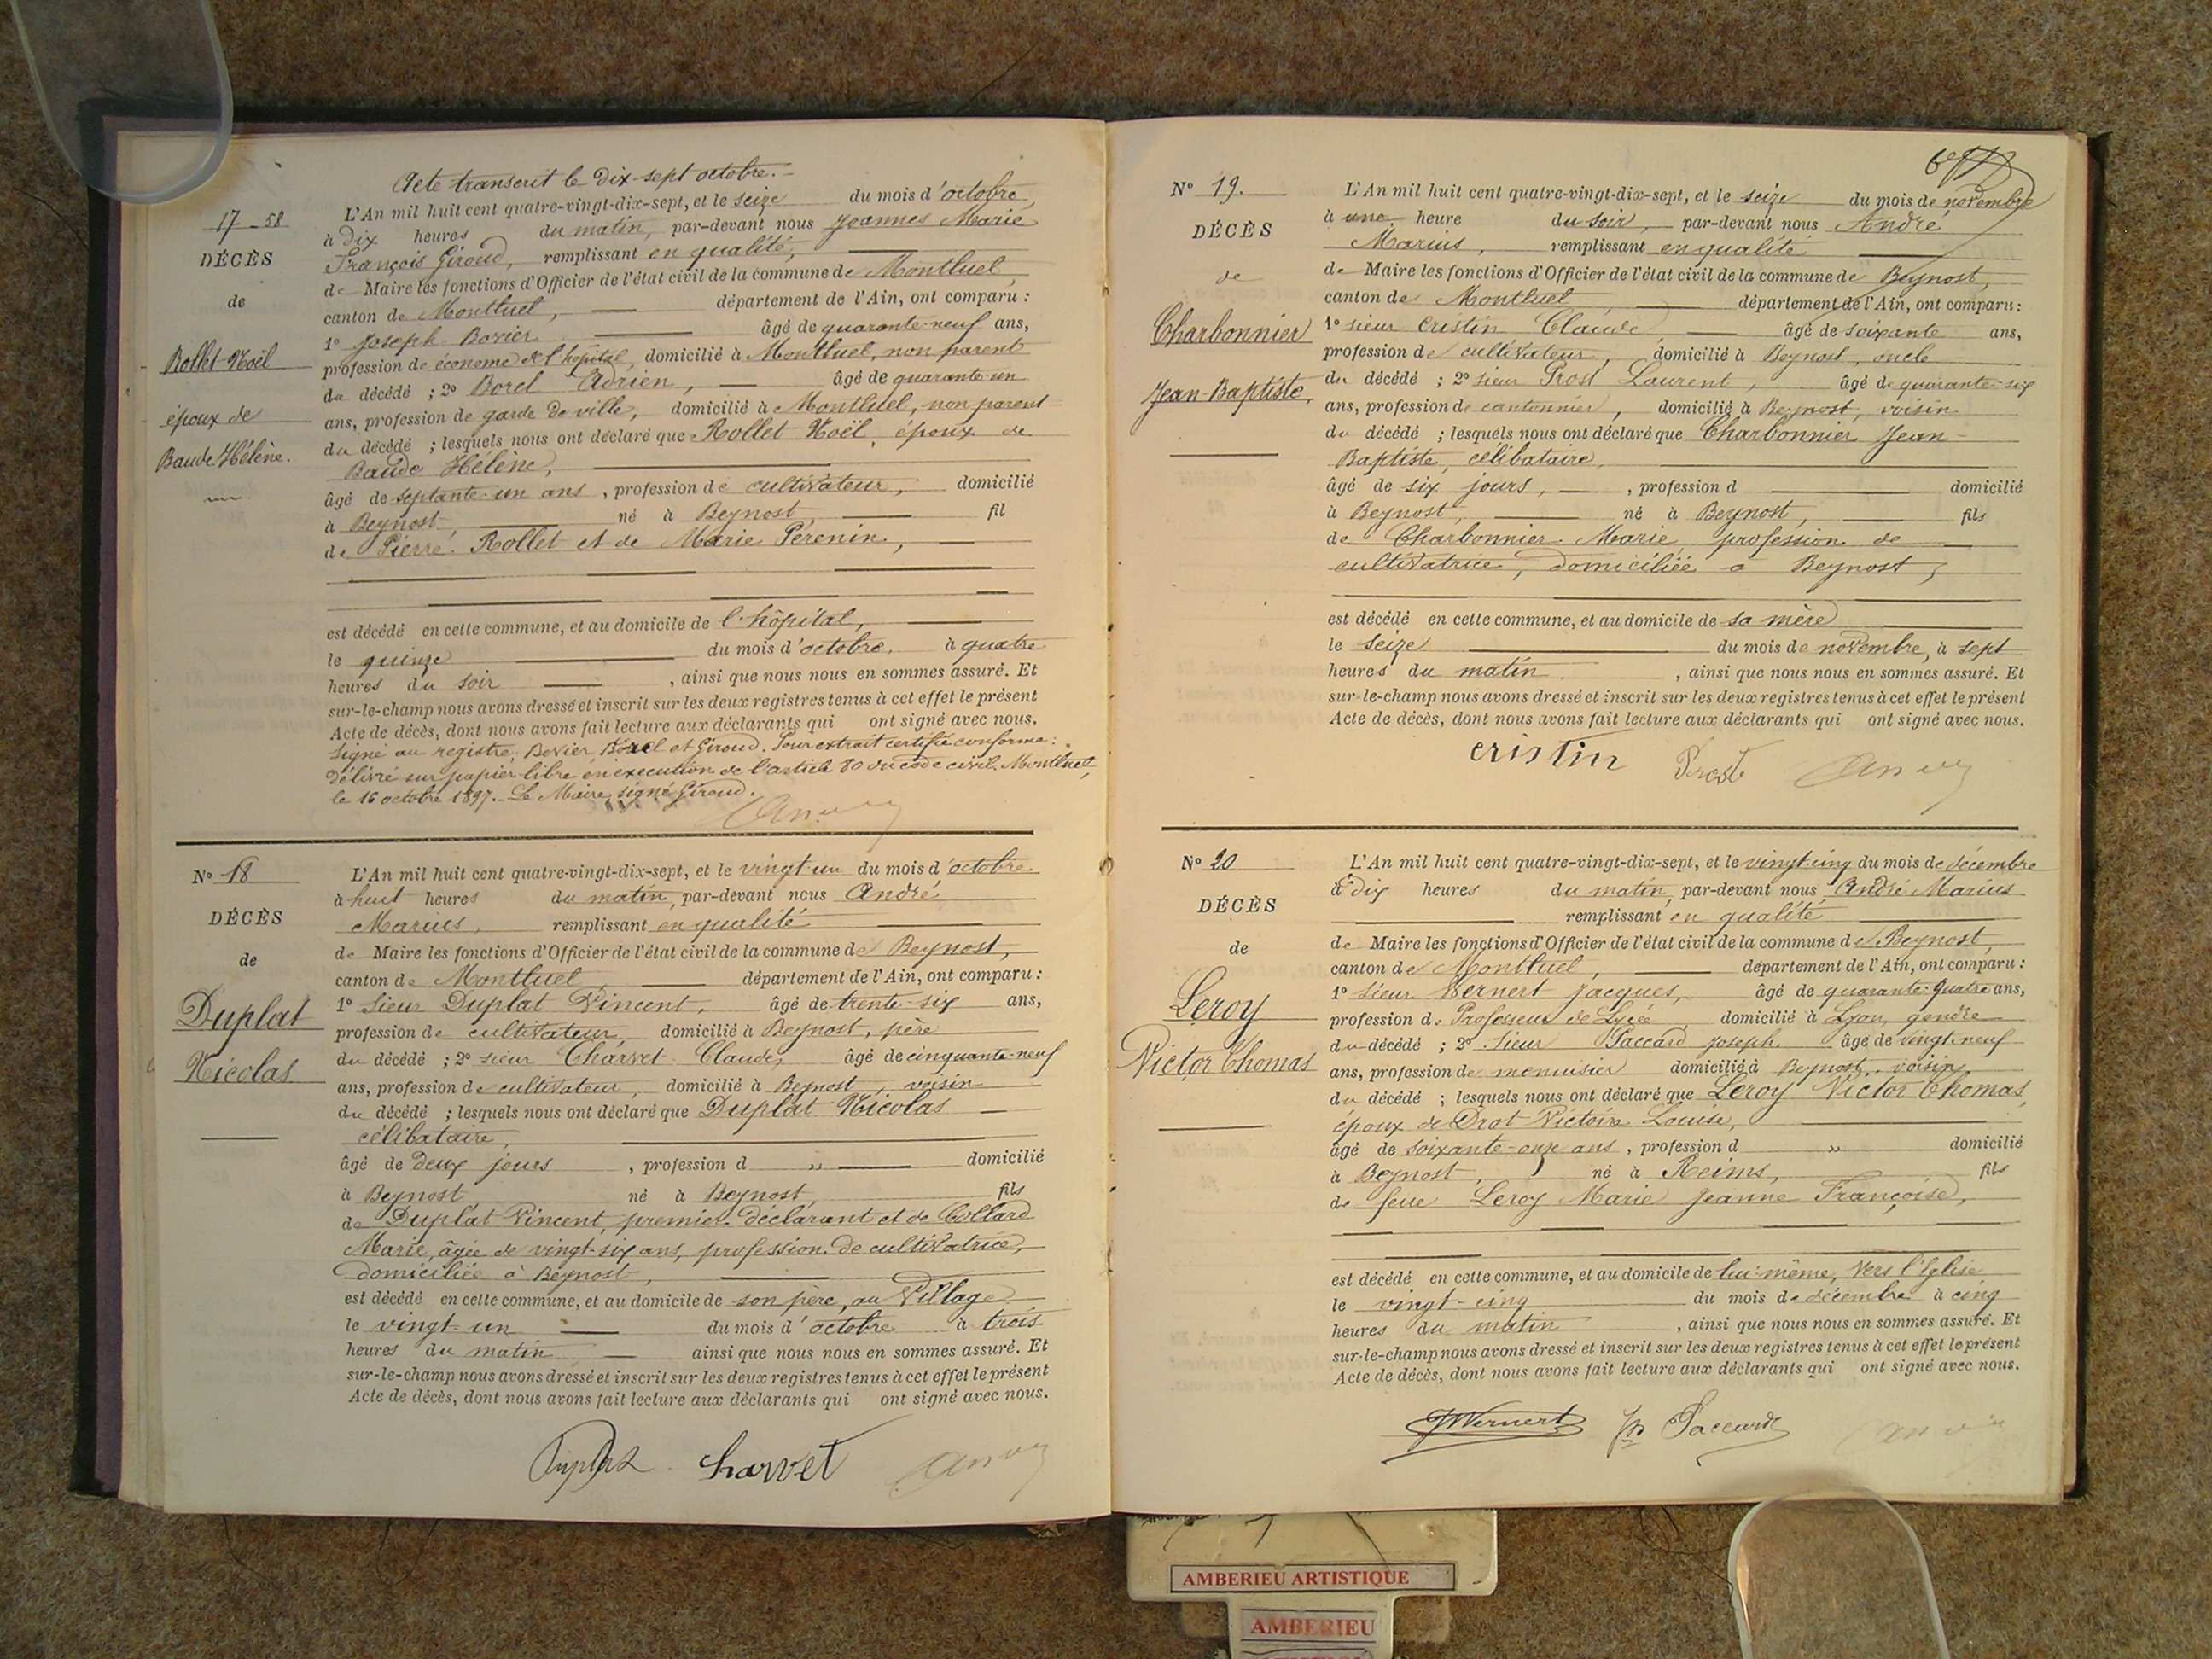 Acte transcrit le dix-sept octobre.-
17-58
DÉCÈS
de
Rollet Noël
époux de
Baude Hélène.
L'An mil huit cent quatre-vingt-dix-sept, et le seize du mois d'octobre,
à dix heures du matin, par-devant nous Joannes Marie
François Giroud, remplissant en qualité,
de Maire les fonctions d'Officier de l'état civil de la commune de Montluel
canton de Montluel, département de l'Ain, ont comparu :
1° Joseph Bovier âgé de quarante-neuf ans,
profession de économe de l'hôpital, domicilié à Montluel, non parent
du décédé ; 2° Borel Adrien, âgé de quarante-un
ans, profession de garde de ville, domicilié à Montluel, non parent
du décédé ; lesquels nous ont déclaré que Rollet Noël, époux de
Baude Hélène,
âgé de septante-un ans, profession de cultivateur, domicilié
à Beynost, né à Beynost, fil
de Pierre Rollet et de Marie Perenin,
est décédé en cette commune, et au domicile de l'hôpital,
le quinze du mois d'octobre, à quatre
heures du soir, ainsi que nous nous en sommes assuré. Et
sur-le-champ nous avons dressé et inscrit sur les deux registres tenus à cet effet le présent
Acte de décès, dont nous avons fait lecture aux déclarants qui ont signé avec nous.
Signé au registre, Bovier, Borel et Giroud. Pour extrait certifié conforme :
Délivré sur papier libre en exécution de l'article 80 du code civil. Montluel,
le 16 octobre 1897.- Le Maire, signé Giroud.
N° 18
DÉCÈS
de
Duplat
Nicolas
L'An mil huit cent quatre-vingt-dix-sept, et le vingt-un du mois d'octobre
à huit heures du matin, par-devant nous André
Marius, remplissant en qualité
de Maire les fonctions d'Officier de l'état civil de la commune de Beynost,
canton de Montluel département de l'Ain, ont comparu :
1° sieur Duplat Vincent, âgé de trente-six ans,
profession de cultivateur, domicilié à Beynost, père
du décédé ; 2° sieur Charvet Claude, âgé de cinquante-neuf
ans, profession de cultivateur, domicilié à Beynost, voisin
du décédé ; lesquels nous ont déclaré que Duplat Nicolas
célibataire,
âgé de deux jours, profession d " domicilié
à Beynost, né à Beynost, fils
de Duplat Vincent, premier déclarant et de Collard
Marie, âgée de vingt-six ans, profession de cultivatrice,
domiciliée à Beynost,
est décédé en cette commune, et au domicile de son père, au Village
le vingt-un du mois d'octobre à trois
heures du matin ainsi que nous nous en sommes assuré. Et
sur-le-champ nous avons dressé et inscrit sur les deux registres tenus à cet effet le présent
Acte de décès, dont nous avons fait lecture aux déclarants qui ont signé avec nous.
Duplat Charvet
N° 19.
DÉCÈS
de
Charbonnier
Jean-Baptiste,
L'An mil huit cent quatre-vingt-dix-sept, et le seize du mois de novembre
à une heure du soir, par-devant nous André
Marius, remplissant en qualité
de Maire les fonctions d'Officier de l'état civil de la commune de Beynost,
canton de Montluel département de l'Ain, ont comparu :
1° sieur Cristin Claude âgé de soixante ans,
profession de cultivateur, domicilié à Beynost, oncle
du décédé ; 2° sieur Prost Laurent, âgé de quarante-six
ans, profession de cantonnier, domicilié à Beynost, voisin
du décédé ; lesquels nous ont déclaré que Charbonnier Jean-
Baptiste, célibataire,
âgé de six jours, , profession d domicilié
à Beynost, né à Beynost, fils
de Charbonnier Marie profession de
cultivatrice, domiciliée à Beynost,
est décédé en cette commune, et au domicile de sa mère
le seize du mois de novembre, à sept
heures du matin, ainsi que nous nous en sommes assuré. Et
sur-le-champ nous avons dressé et inscrit sur les deux registres tenus à cet effet le présent
Acte de décès, dont nous avons fait lecture aux déclarants qui ont signé avec nous.
Cristin Prost
N° 20
DÉCÈS
de
Leroy
Victor Thomas
L'An mil huit cent quatre-vingt-dix-sept, et le vingt-cinq du mois de décembre
à dix heures du matin, par-devant nous André Marius
remplissant en qualité
de Maire les fonctions d'Officier de l'état civil de la commune de Beynost,
canton de Montluel, département de l'Ain, ont comparu :
1° sieur Wernert Jacques, âgé de quarante-quatre ans,
profession de Professeur de Lycée domicilié à Lyon, gendre
du décédé ; 2° sieur Paccard Joseph. âgé de vingt-neuf
ans, profession de menuisier domicilié à Beynost, voisin
du décédé ; lesquels nous ont déclaré que Leroy Victor Thomas,
époux de Drot Victoire Louise,
âgé de soixante-onze ans, profession d " domicilié
à Beynost, né à Reims, fils
de feue Leroy Marie Jeanne Françoise,
est décédé en cette commune, et au domicile de lui-même, vers l'Eglise
le vingt-cinq du mois de décembre à cinq
heures du matin, ainsi que nous nous en sommes assuré. Et
sur-le-champ nous avons dressé et inscrit sur les deux registres tenus à cet effet le présent
Acte de décès, dont nous avons fait lecture aux déclarants qui ont signé avec nous.
JWernert Jh Paccard
AMBERIEU ARTISTIQUE
AMBERIEU